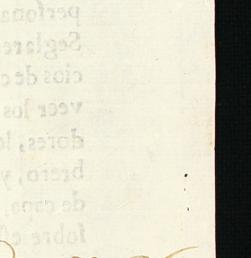 perſona
Seglare
cios de c
veer los
dores, l
brero, y
de capa,
ſobre